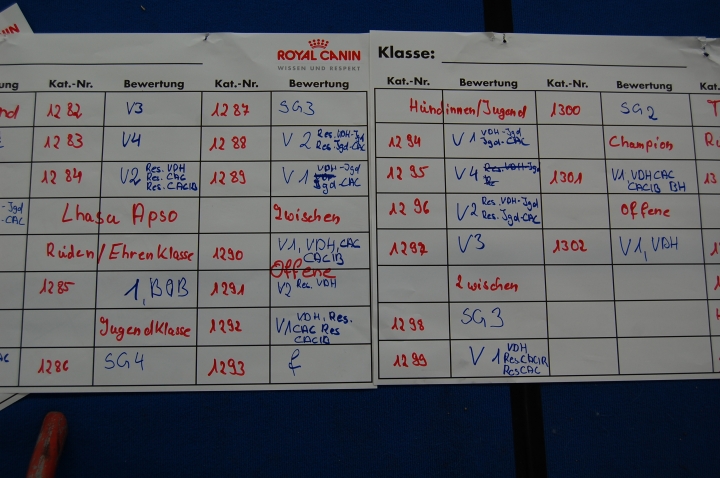 ROYAL CANIN
WISSEN UND RESPEKT
Kat.-Nr. Bewertung Kat.-Nr. Bewertung
1282 V3 1287 SG3
1283 V4 1288 V2 Res. VDH-Jgd
Res. Jgd-CAC
1284 V2 Res. VDH
Res. CAC
Res. CACIB
1289 V1 VDH-Jgd
Jgd-CAC
Lhasa Apso Zwischen
Rüden/Ehrenklasse 1290 V1, VDH, CAC
CACIB
Offene
1285 1, BOB 1291 V2 Res. VDH
Jugendklasse 1292 V1 VDH, Res.
CAC Res
CACIB
1286 SG4 1293 f
Klasse:
Kat.-Nr. Bewertung Kat.-Nr. Bewertung
Hündinnen/Jugend 1300 SG2
1294 V1 VDH-Jgd
Jgd-CAC
Champion
1295 V4 1301 V1, VDH CAC
CACIB BH
1296 V2 Res. VDH-Jgd
Res. Jgd-CAC
Offene
1297 V3 1302 V1, VDH
Zwischen
1298 SG3
1299 V1 VDH
Res CACIB
Res CAC